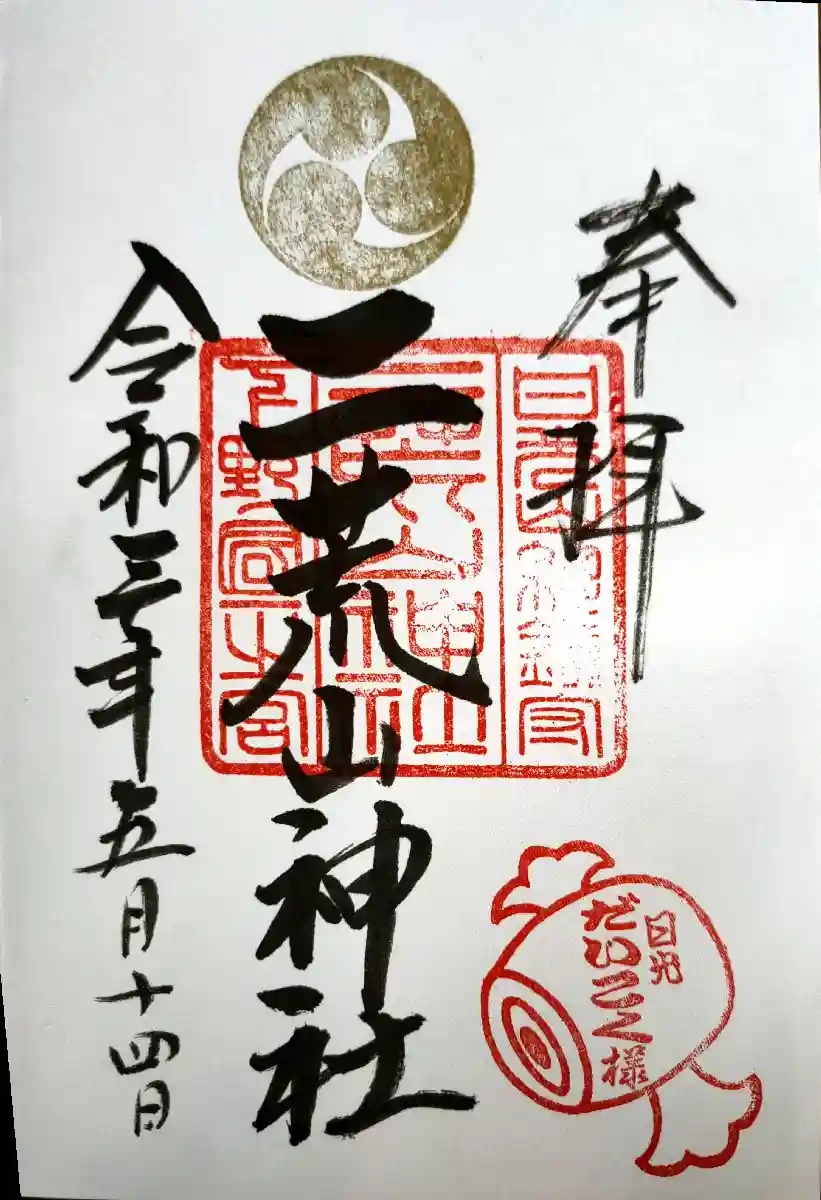 奉拝
二荒山神社
令和三年五月十四日
日光
だいこく様
二荒山神社
下野国一之宮